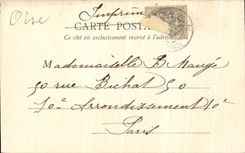 Oise
Imprimé
CARTE POSTALE
Ce côté est exclusivement réservé à l'adresse
Mademoiselle B. Mangé
50 rue Bichat 50
10e Arrondissement 10e
Paris